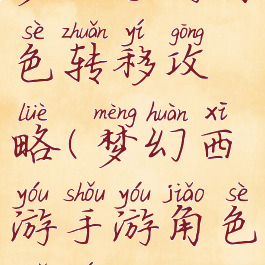 sè zhuǎn yí gōng
色转移攻
lüè mèng huàn xī
略(梦幻西
yóu shǒu yóu jiǎo sè
游手游角色